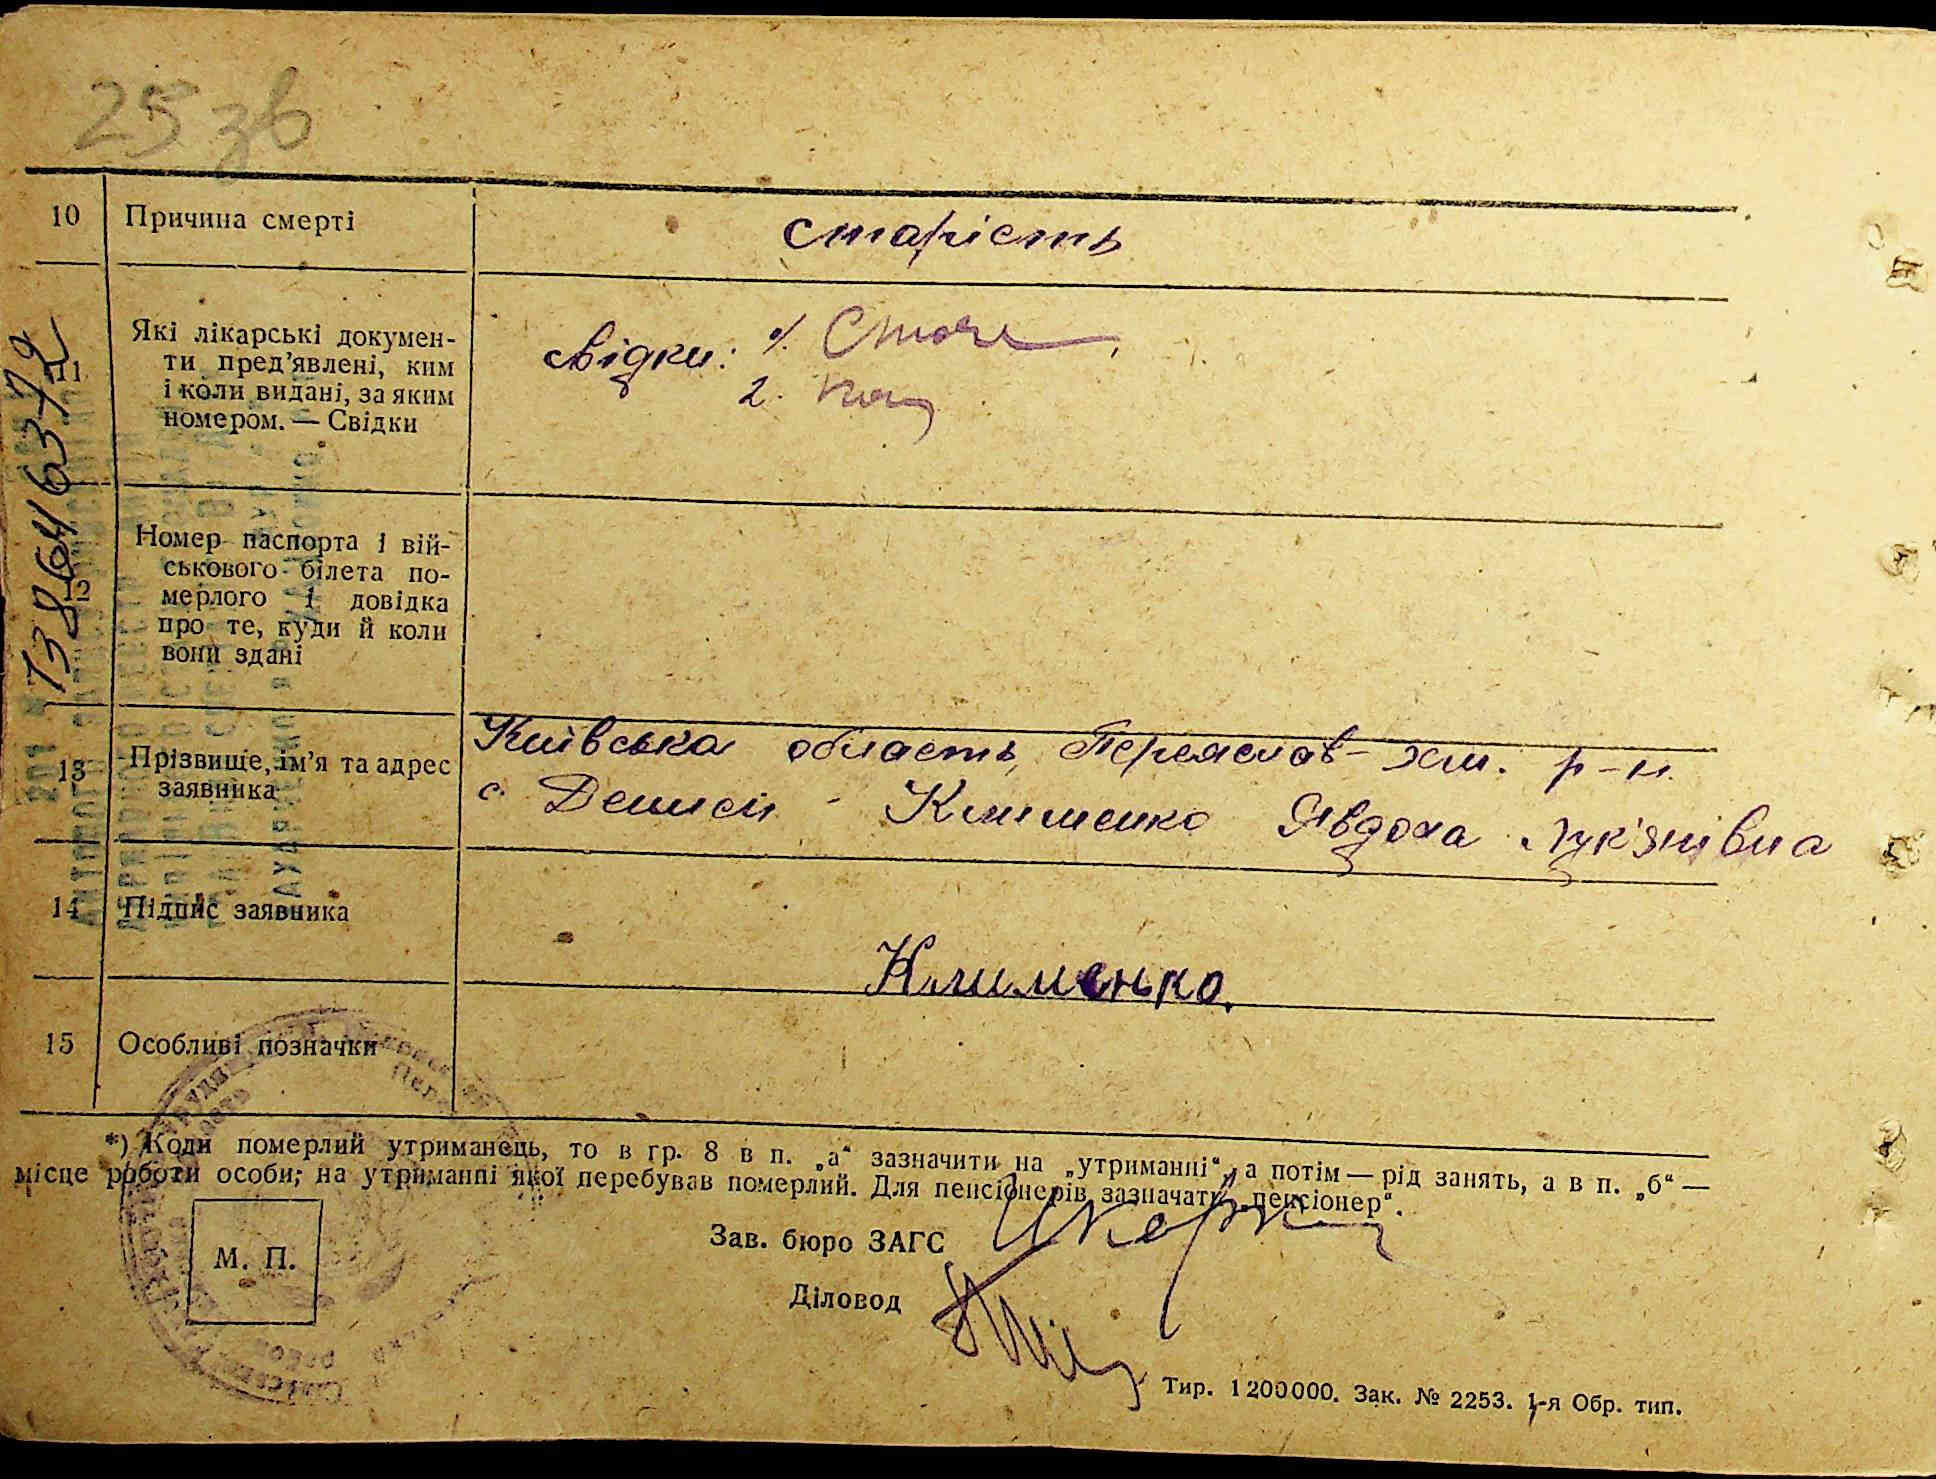 25 зв
10 Причина смерті старість
11 Які лікарські докумен-
ти пред'явлені, ким
і коли видані, за яким
номером. — Свідки
свідки: 1.
2.
12 Номер паспорта і вій-
ськового білета по-
мерлого і довідка
про те, куди й коли
вони здані
13 Прізвище, ім'я та адрес
заявника
Київська область, Переяслав-Хм. р-н.
с. Дениси - Клименко Явдоха Лук'янівна
14 Підпис заявника
Клименко.
15 Особливі позначки
*) Коли померлий утриманець, то в гр. 8 в п. „а“ зазначити на „утриманні“, а потім — рід занять, а в п. „б“ —
місце роботи особи; на утриманні якої перебував померлий. Для пенсіонерів зазначати „пенсіонер“.
М. П.
Зав. бюро ЗАГС
Діловод
Тир. 1200000. Зак. № 2253. 1-я Обр. тип.